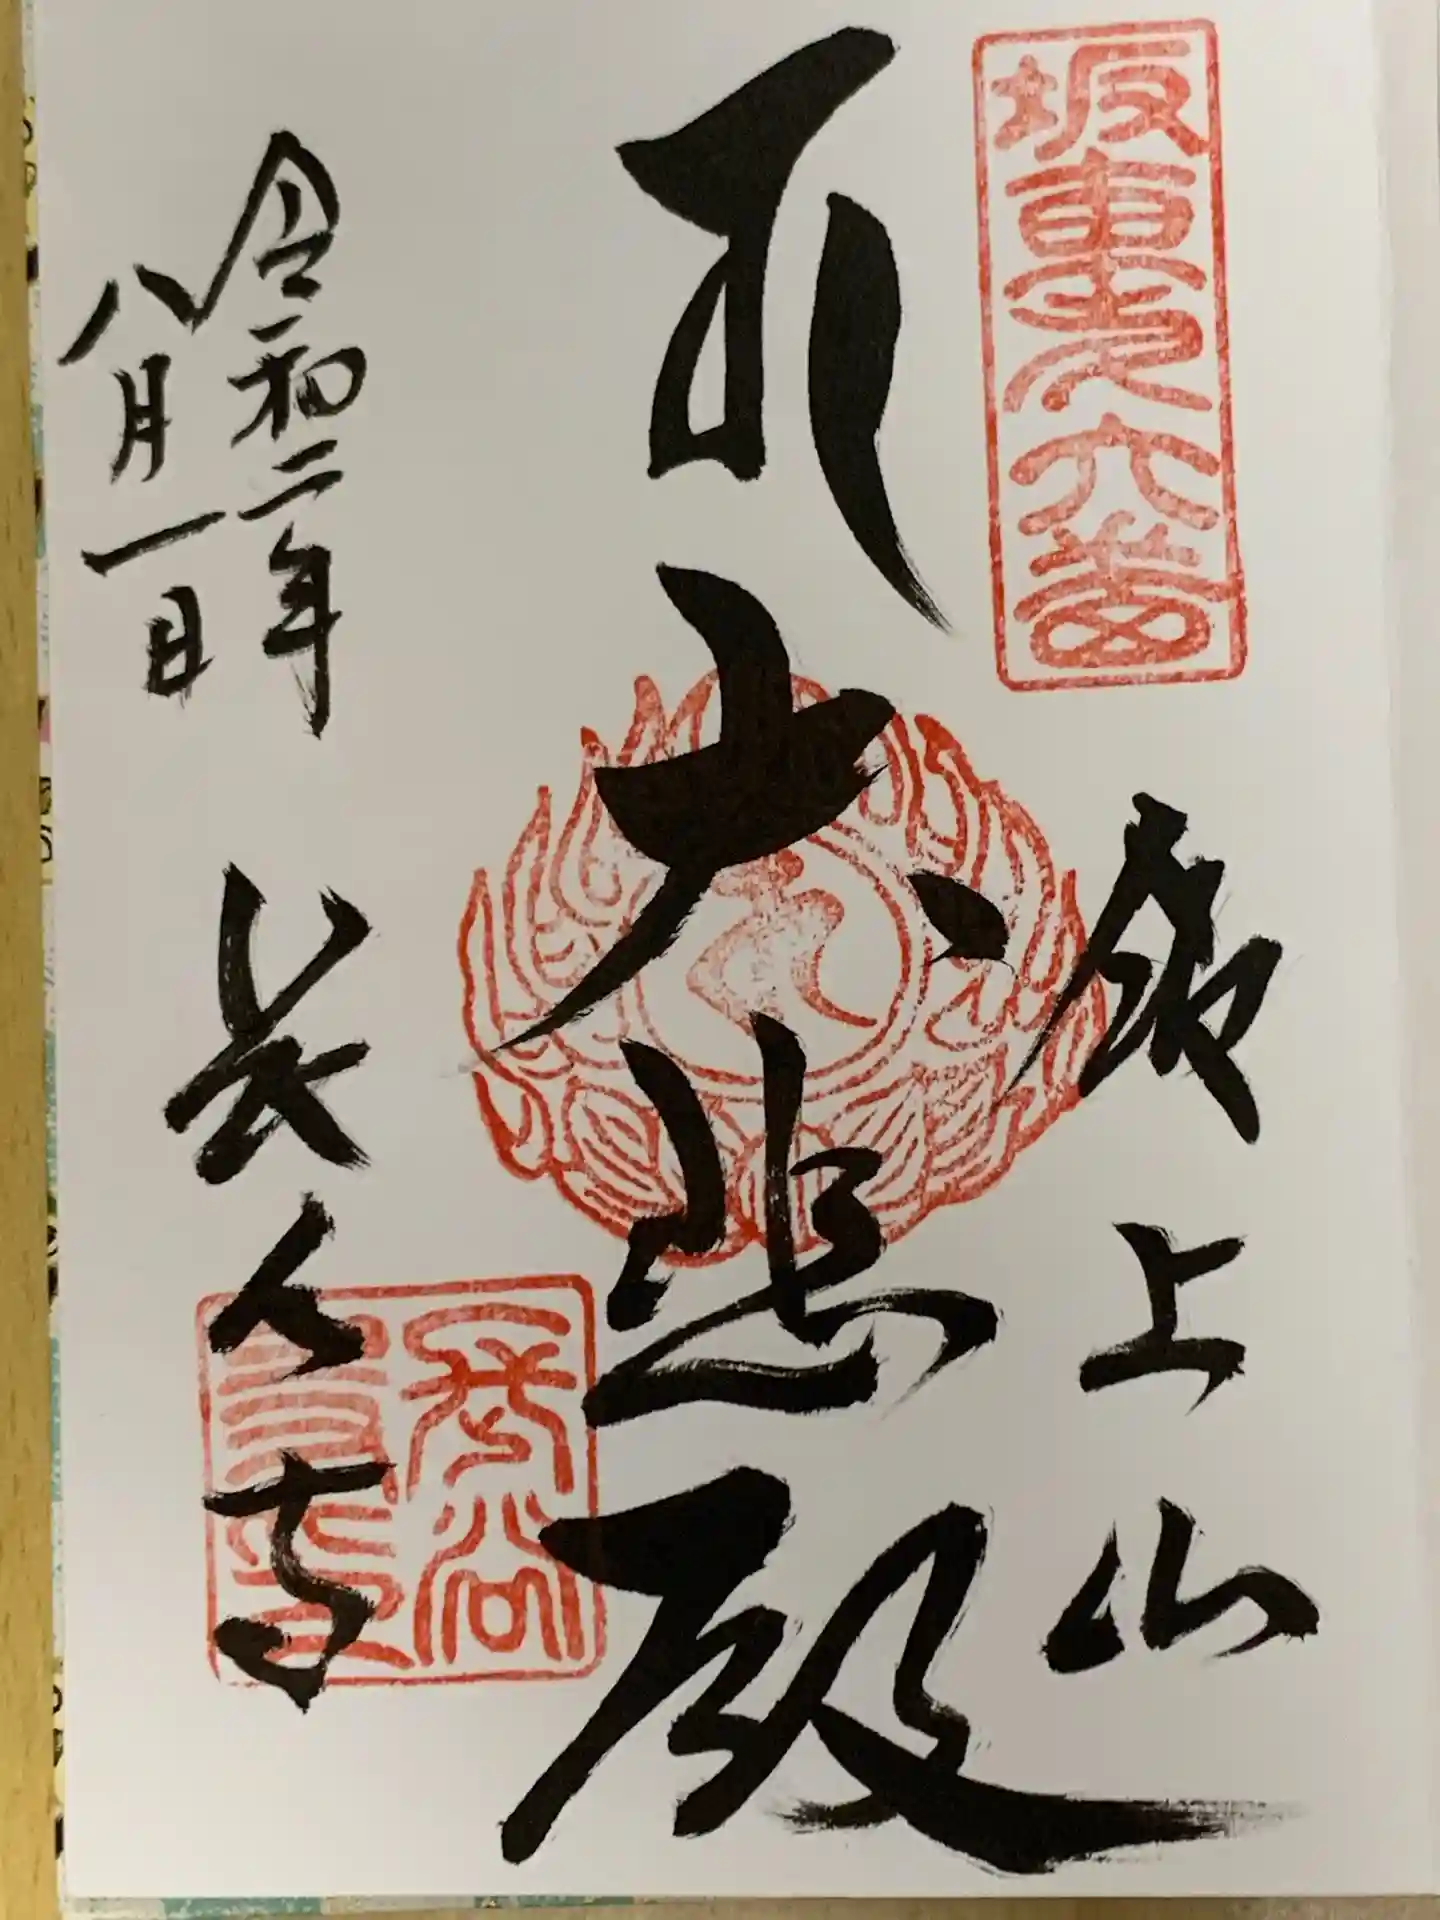 坂東第六番
飯上山
大悲殿
令和二年
八月一日
長谷寺